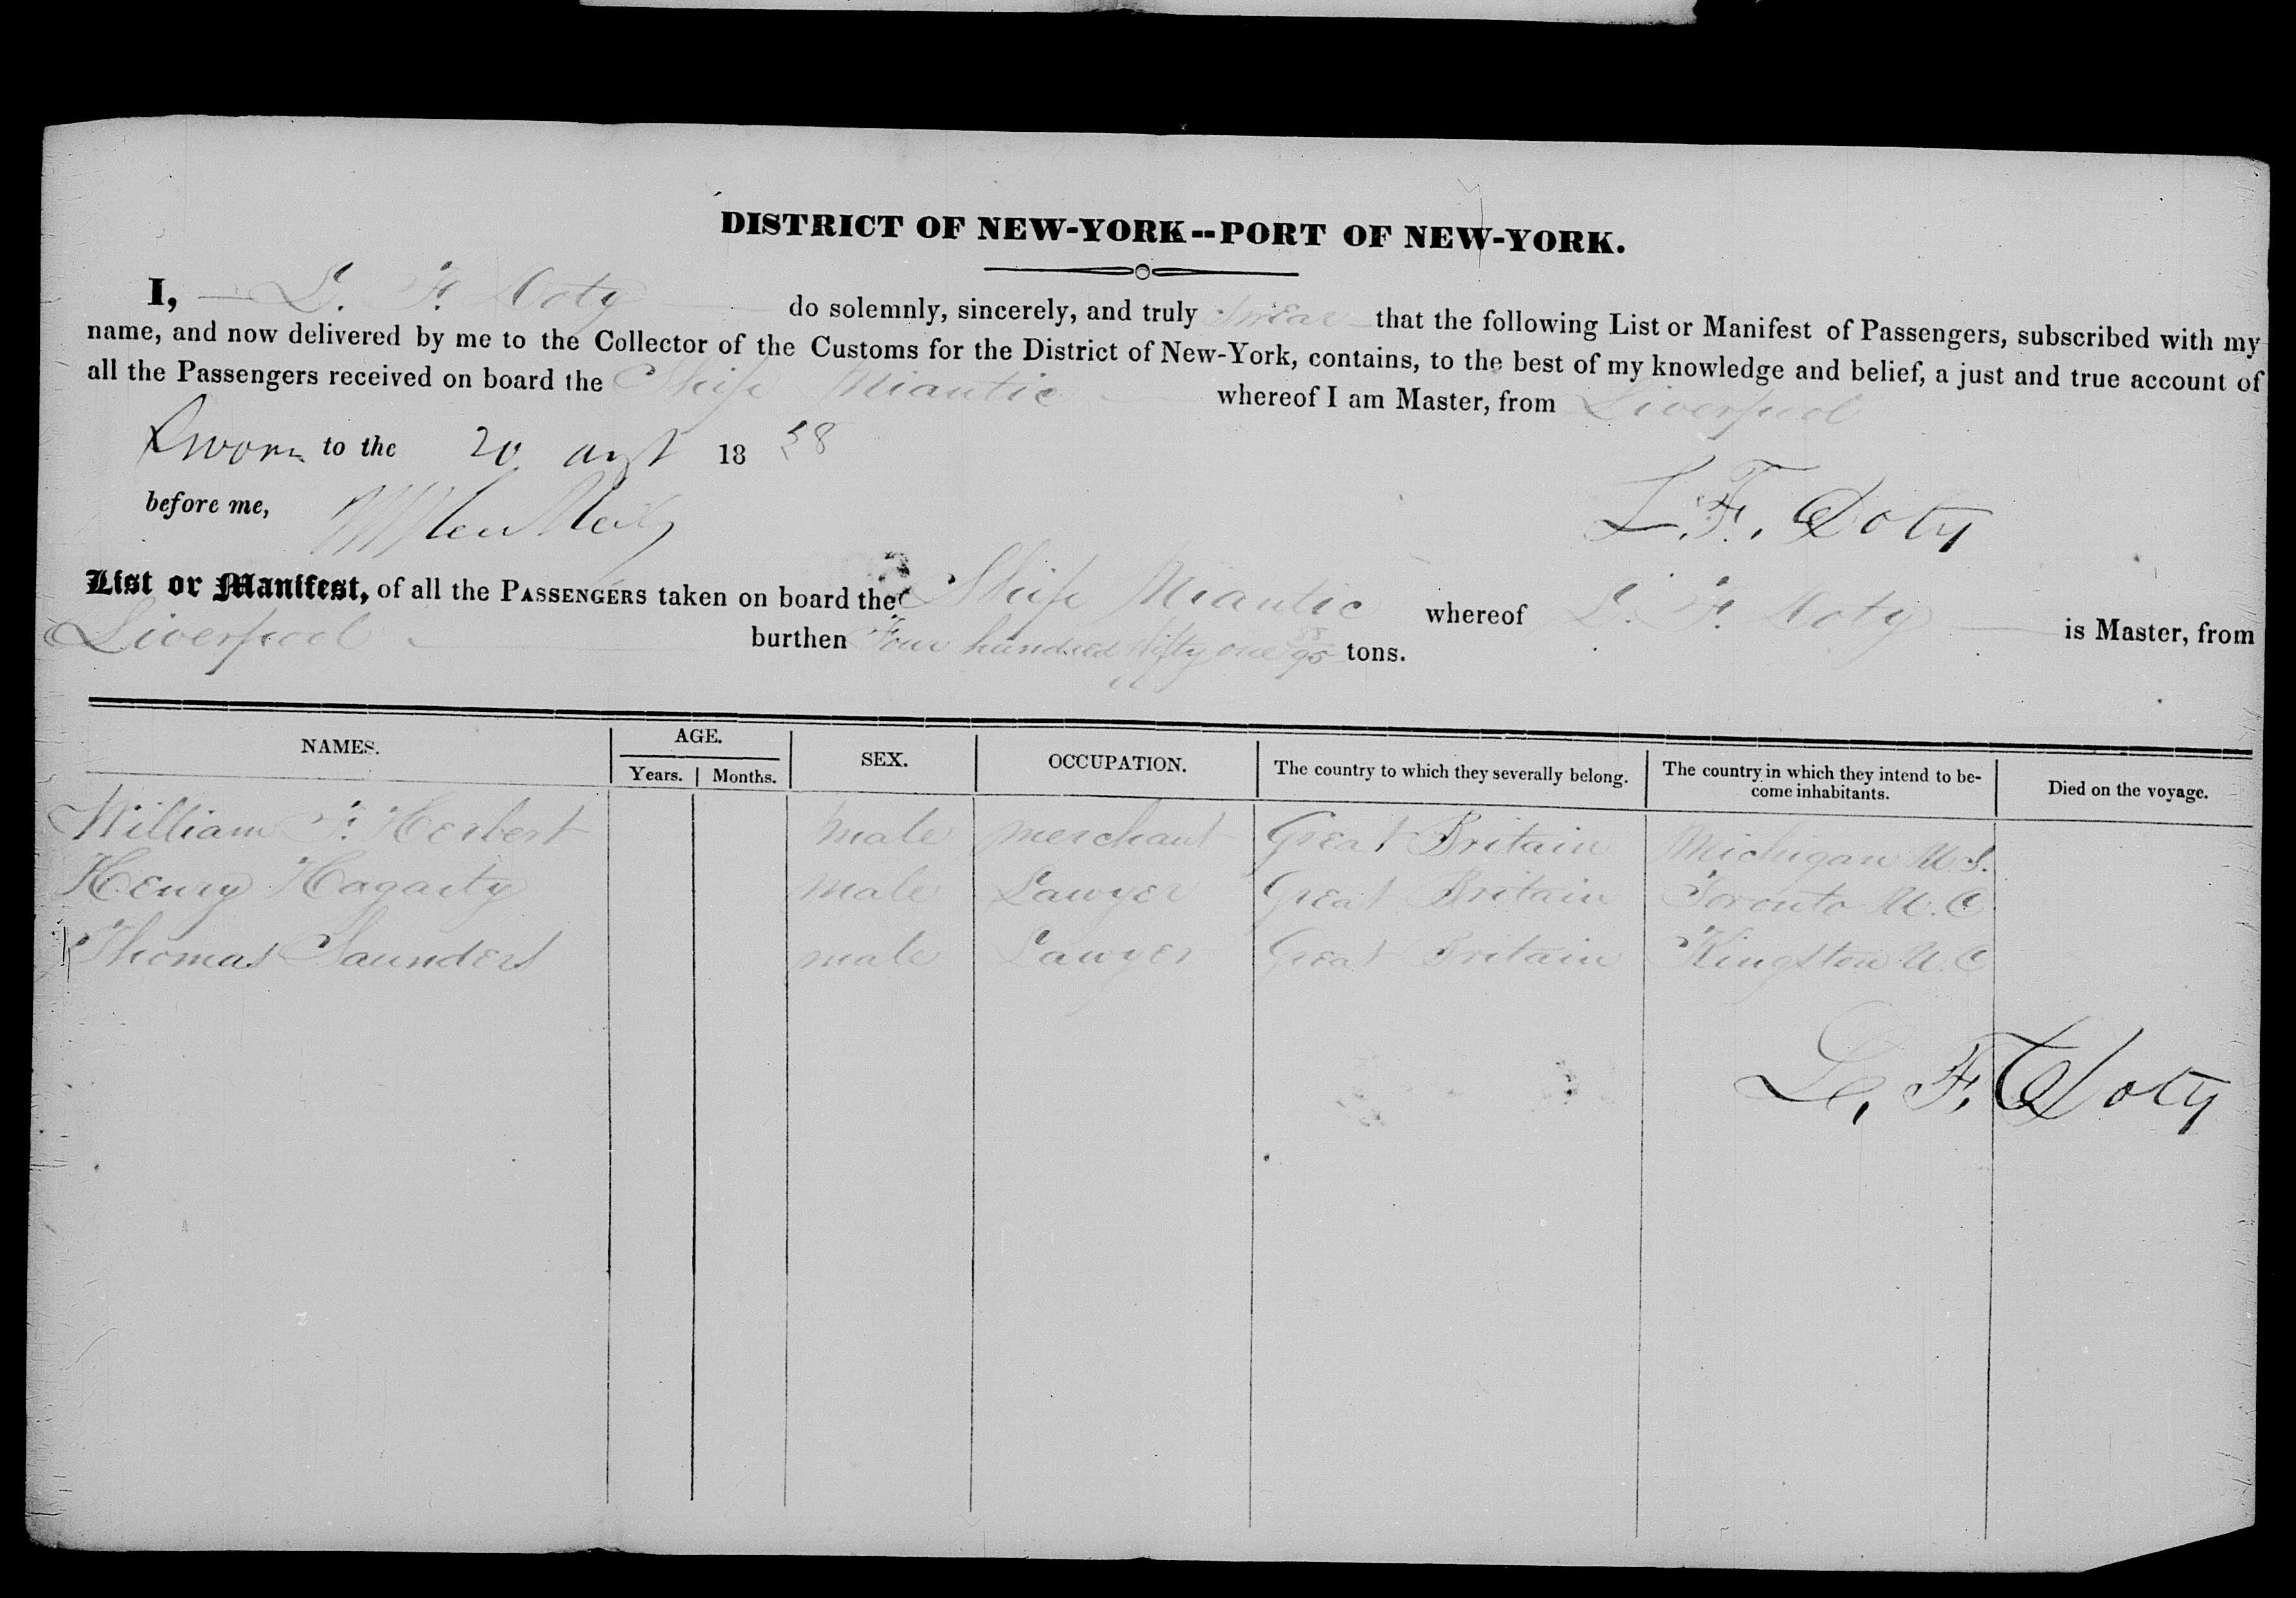 DISTRICT OF NEW-YORK--PORT OF NEW-YORK.
I, L. F. Doty do solemnly, sincerely, and truly swear that the following List or Manifest of Passengers, subscribed with my
name, and now delivered by me to the Collector of the Customs for the District of New-York, contains, to the best of my knowledge and belief, a just and true account of
all the Passengers received on board the Ship Niantic whereof I am Master, from Liverpool
Sworn to the 20 augt 1838
before me,
L. F. Doty
List or Manifest, of all the PASSENGERS taken on board the Ship Niantic whereof L. F. Doty is Master, from
Liverpool burthen Four hundred fifty one 95 tons.
NAMES. AGE. SEX. OCCUPATION. The country to which they severally belong. The country in which they intend to be- Died on the voyage.
Years. Months. come inhabitants.
William F. Herbert male merchant Great Britain Michigan U.S.
Henry Hagarty male Lawyer Great Britain Toronto U.C.
Thomas Saunders male Lawyer Great Britain Kingston U.C
L. F. Doty